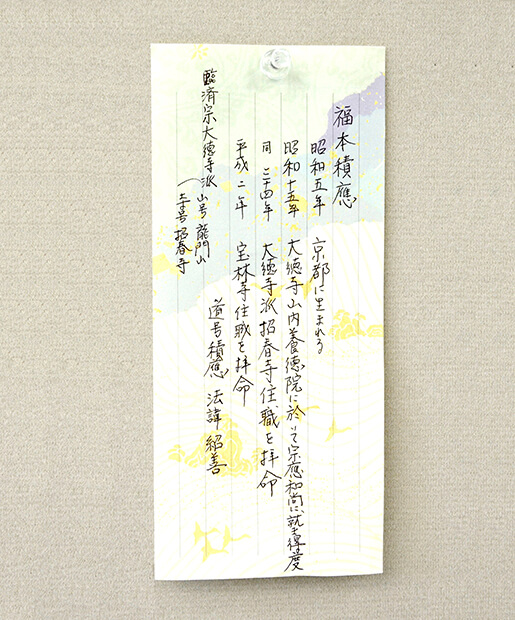 福本積應
昭和五年 京都に生まれる
昭和十五年 大徳寺山内養徳院に於いて宗應和尚に就き得度
同 三十四年 大徳寺派招春寺住職を拝命
平成二年 宝林寺住職を拝命
道号積應 法諱紹善
臨済宗大徳寺派 山号龍門山
寺号招春寺